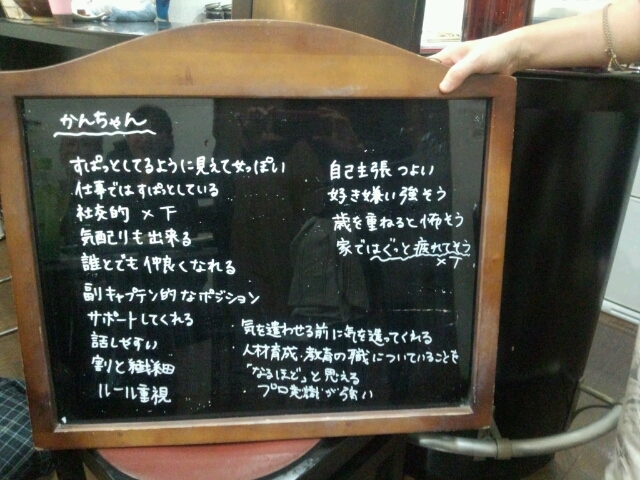 かんちゃん
すぱっとしてるように見えて女っぽい
仕事ではすぱっとしている
社交的 ×下
気配りも出来る
誰とでも仲良くなれる
副キャプテン的なポジション
サポートしてくれる
話しやすい
割と繊細
ルール重視
自己主張つよい
好き嫌い強そう
歳を重ねると怖そう
家ではぐっと疲れてそう
×下
・気を遣わせる前に気を遣ってくれる
・人材育成・教育の職についていることを
「なるほど」と思える
プロ意識が強い